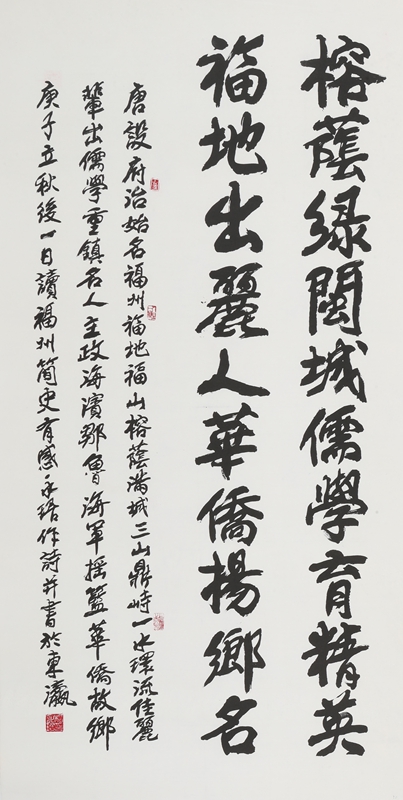 榕蔭緑閩城儒學育精英
福地出麗人華僑楊鄉名
唐設府治始名福州福地福山榕蔭滿城三山鼎峙一水環流佳麗
輩出儒學重鎮名人主政海濱鄒魯海軍摇籃華僑故鄉
庚子立秋後一日讀福州簡史有感永珸作詩并書於東瀛